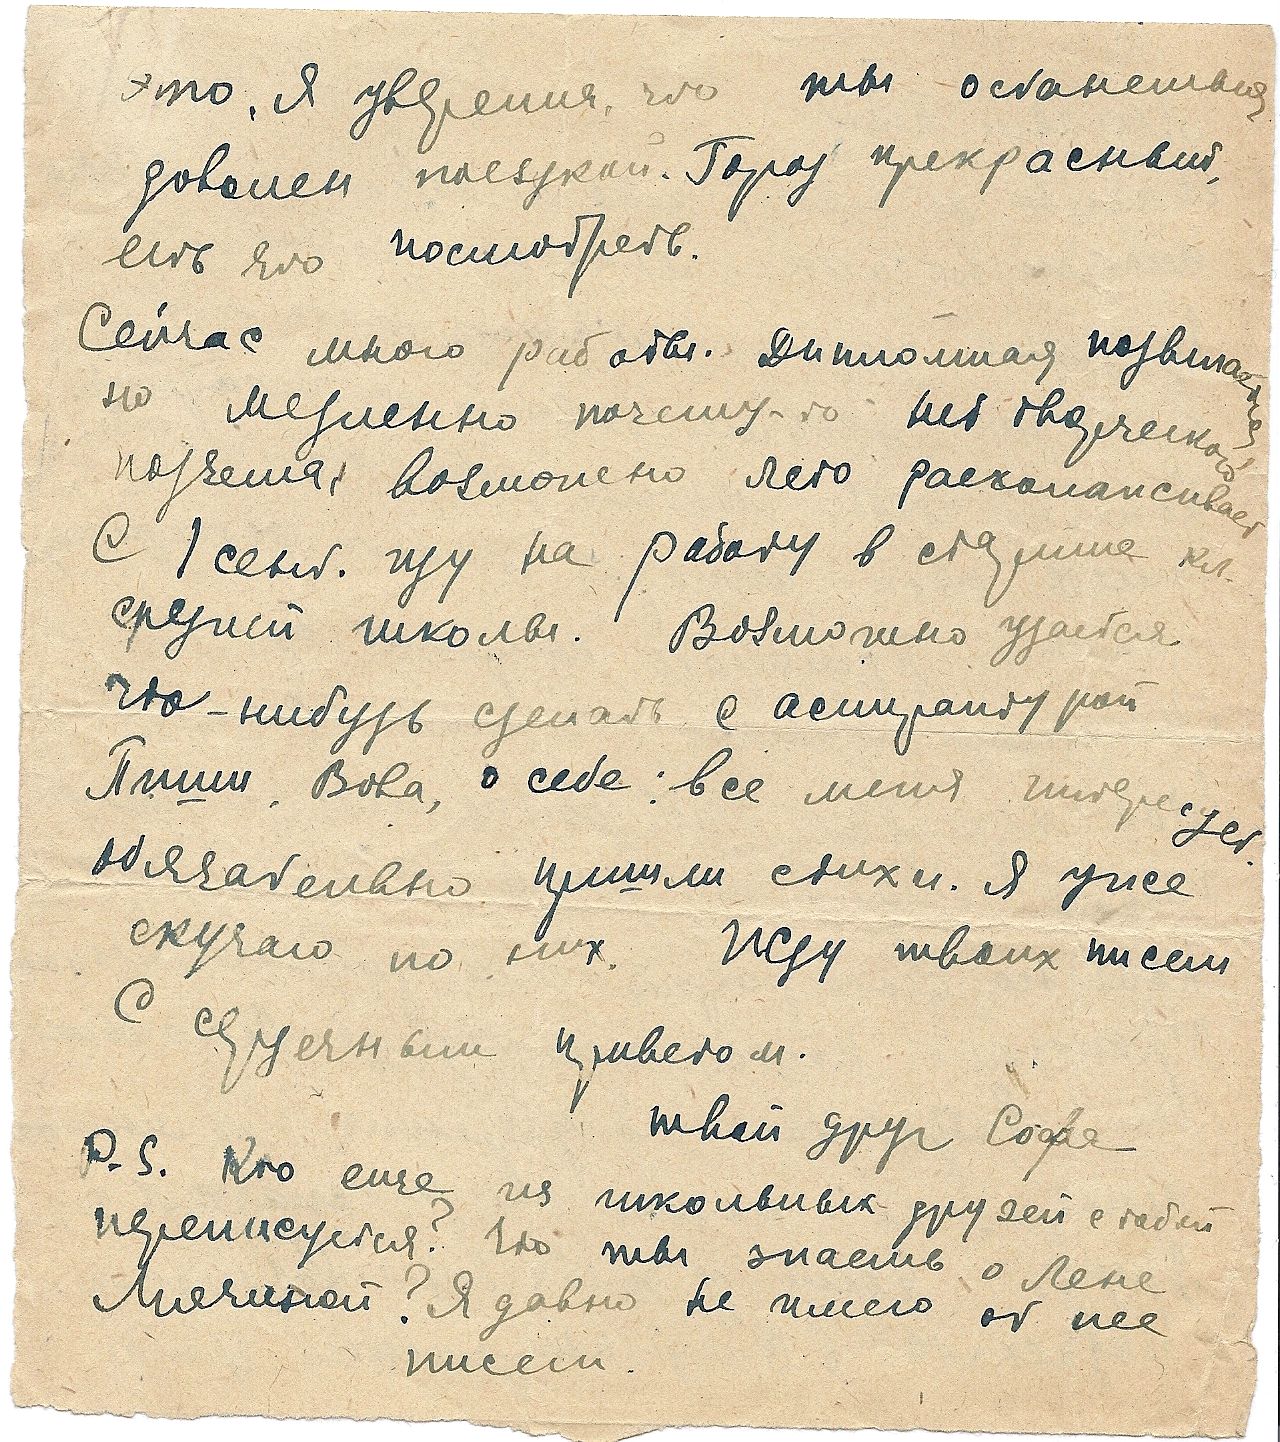 это, я уверена, что ты останешься
доволен поездкой. Город прекрасный,
есть что посмотреть.
Сейчас много работы. Дипломная подвигается,
но медленно почему-то нет творческой
подъема, возможно лето расхолаживает
С 1 сент. иду на работу в старшие кл.
средней школы. Возможно удастся
что-нибудь сделать с аспирантурой
Пиши, Вова, о себе: все меня интересует.
Обязательно пришли стихи. Я уже
скучаю по ним. Жду твоих писем
С сердечным приветом.
твой друг Софа
P.S. Кто еще из школьных друзей с тобой
переписуется? Что ты знаешь о Лене
? Я давно не имею от нее
писем.